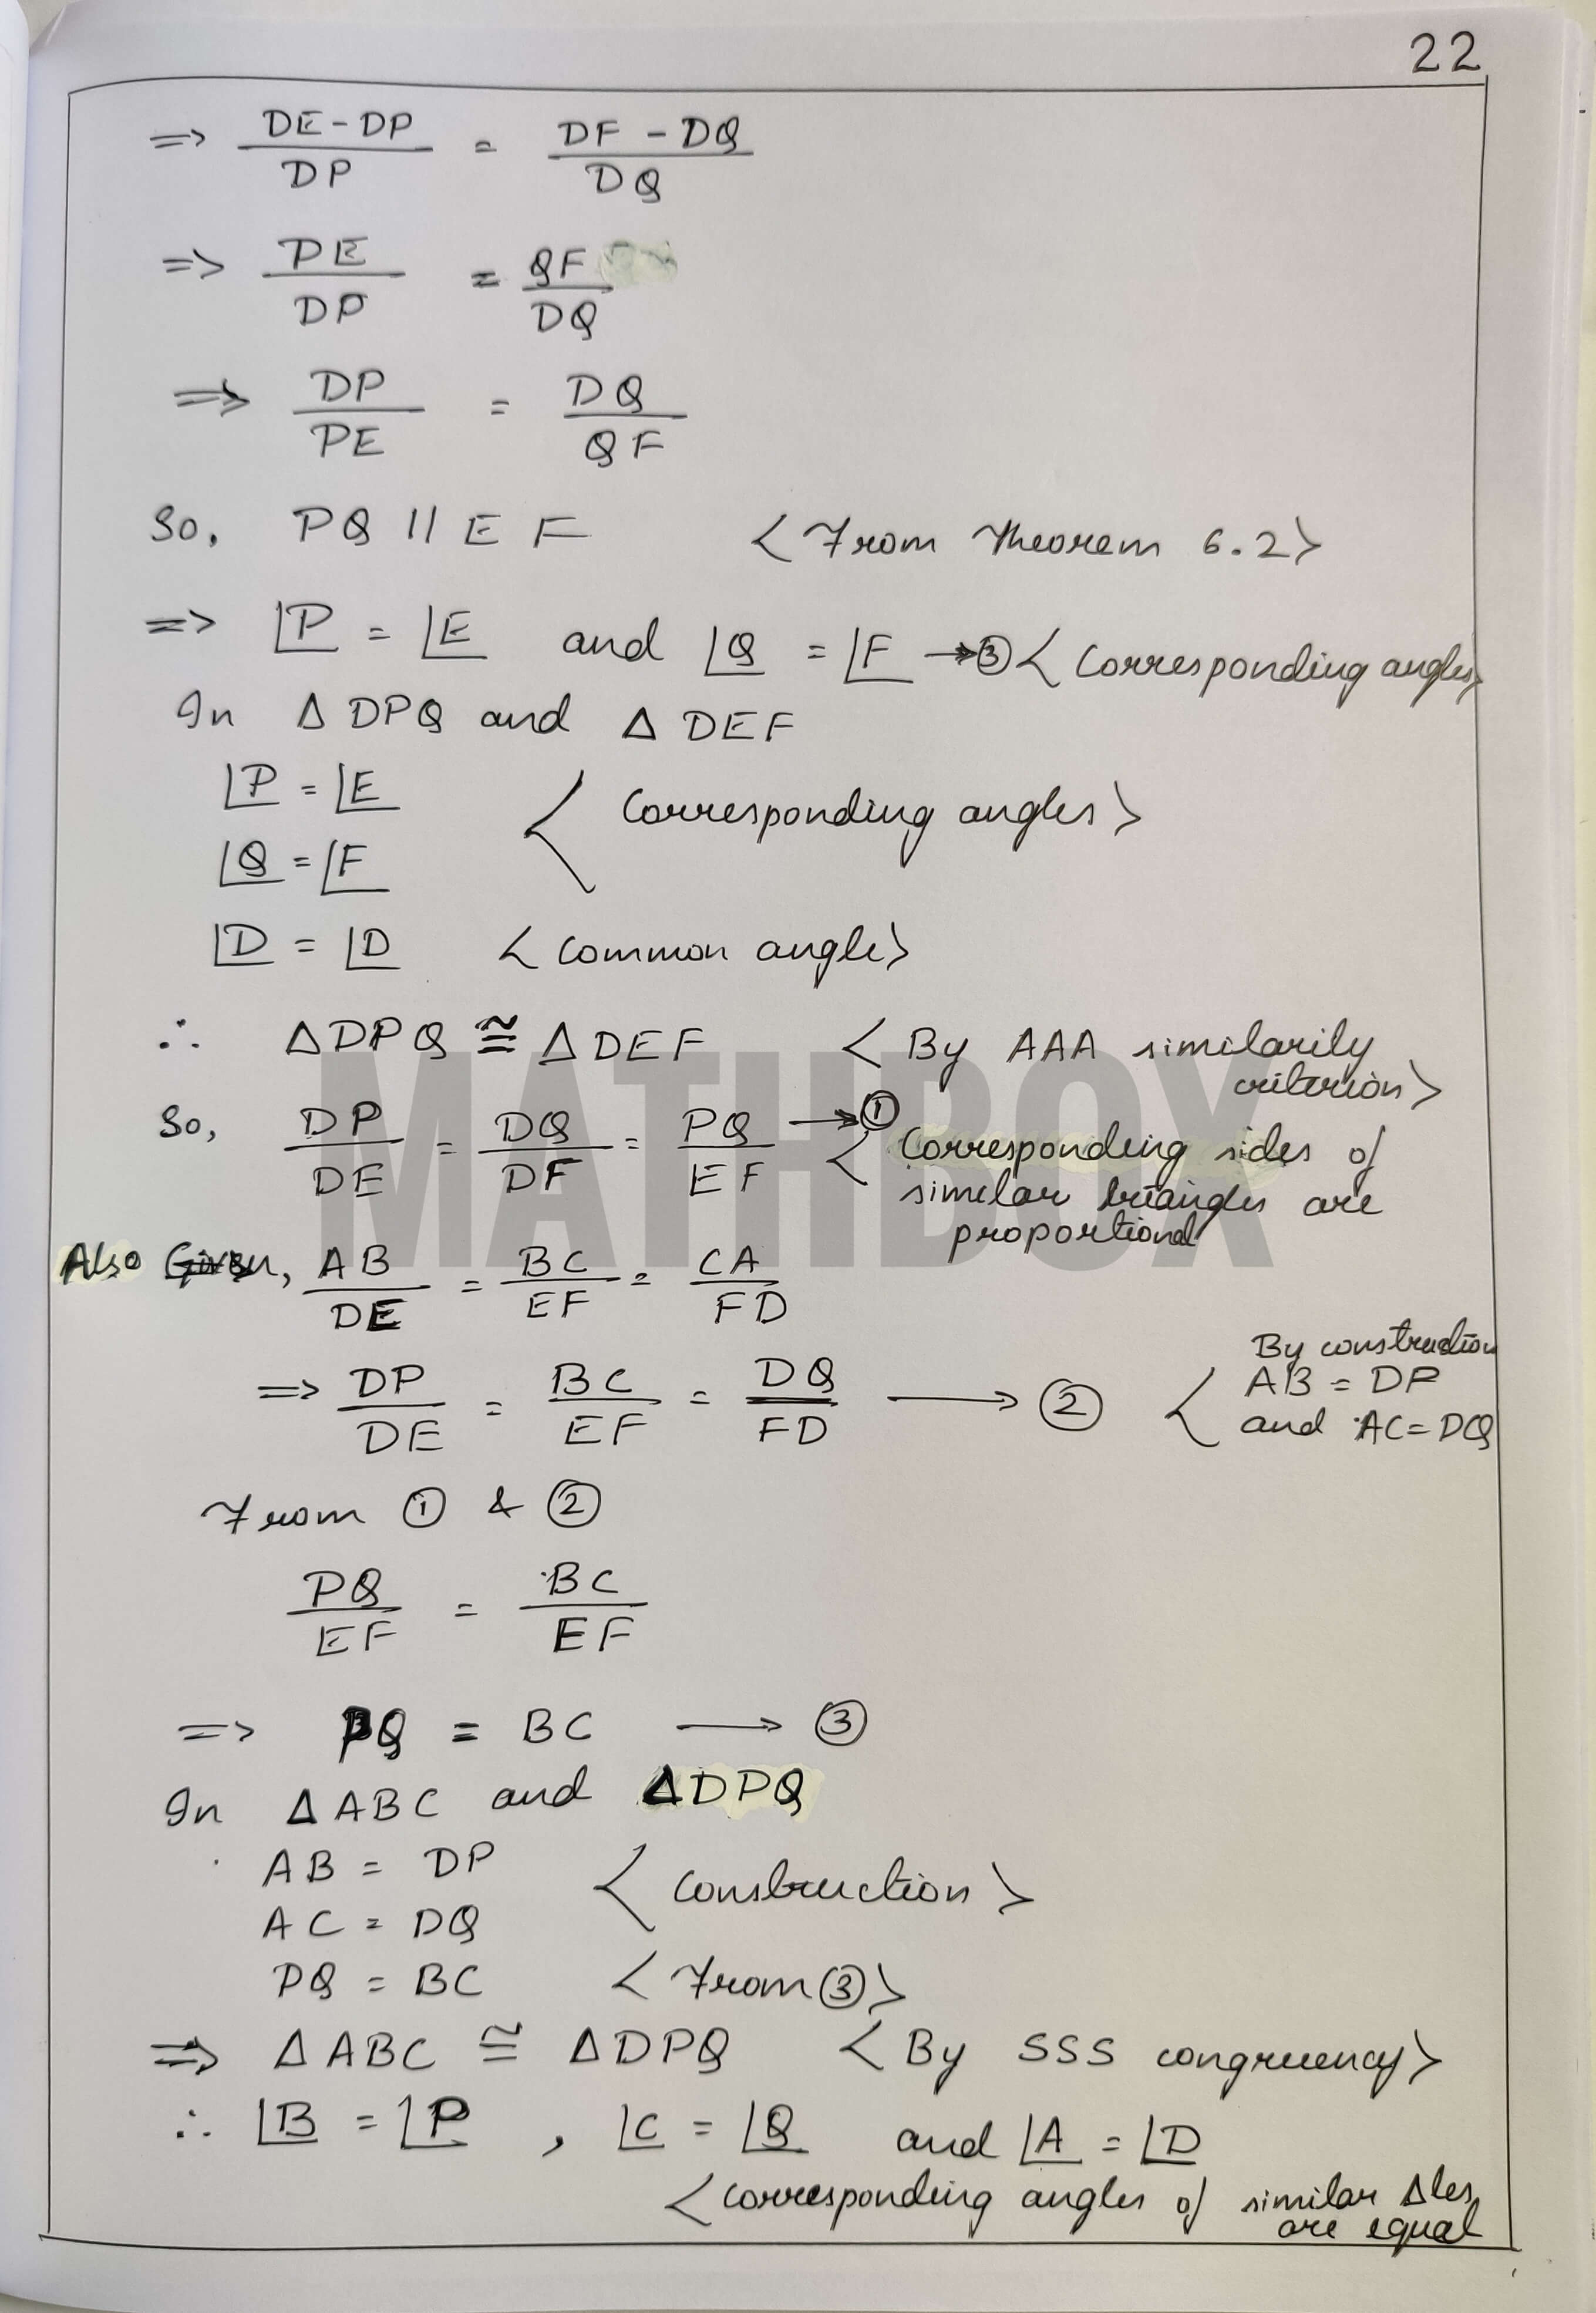 22
=> DE-DP / DP = DF - DQ / DQ
=> PE / DP = QF / DQ
=> DP / PE = DQ / QF
So, PQ || EF < From Theorem 6.2 >
=> ∠P = ∠E and ∠Q = ∠F → ③ < Corresponding angles >
In Δ DPQ and Δ DEF
∠P = ∠E
< Corresponding angles >
∠Q = ∠F
∠D = ∠D < Common angle >
∴ ΔDPQ ≅ ΔDEF < By AAA similarily
criterion >
So, DP / DE = DQ / DF = PQ / EF → ①
< Corresponding sides of
similar triangles are
proportional
Also Given, AB / DE = BC / EF = CA / FD
=> DP / DE = BC / EF = DQ / FD → ② < By construction
AB = DP
and AC = DQ
From ① & ②
PQ / EF = BC / EF
=> PQ = BC → ③
In Δ ABC and ΔDPQ
AB = DP
< Construction >
AC = DQ
PQ = BC < From ③ >
=> Δ ABC ≅ ΔDPQ < By SSS congruency >
∴ ∠B = ∠P , ∠C = ∠Q and ∠A = ∠D
< corresponding angles of similar Δles
are equal
MATHBOX